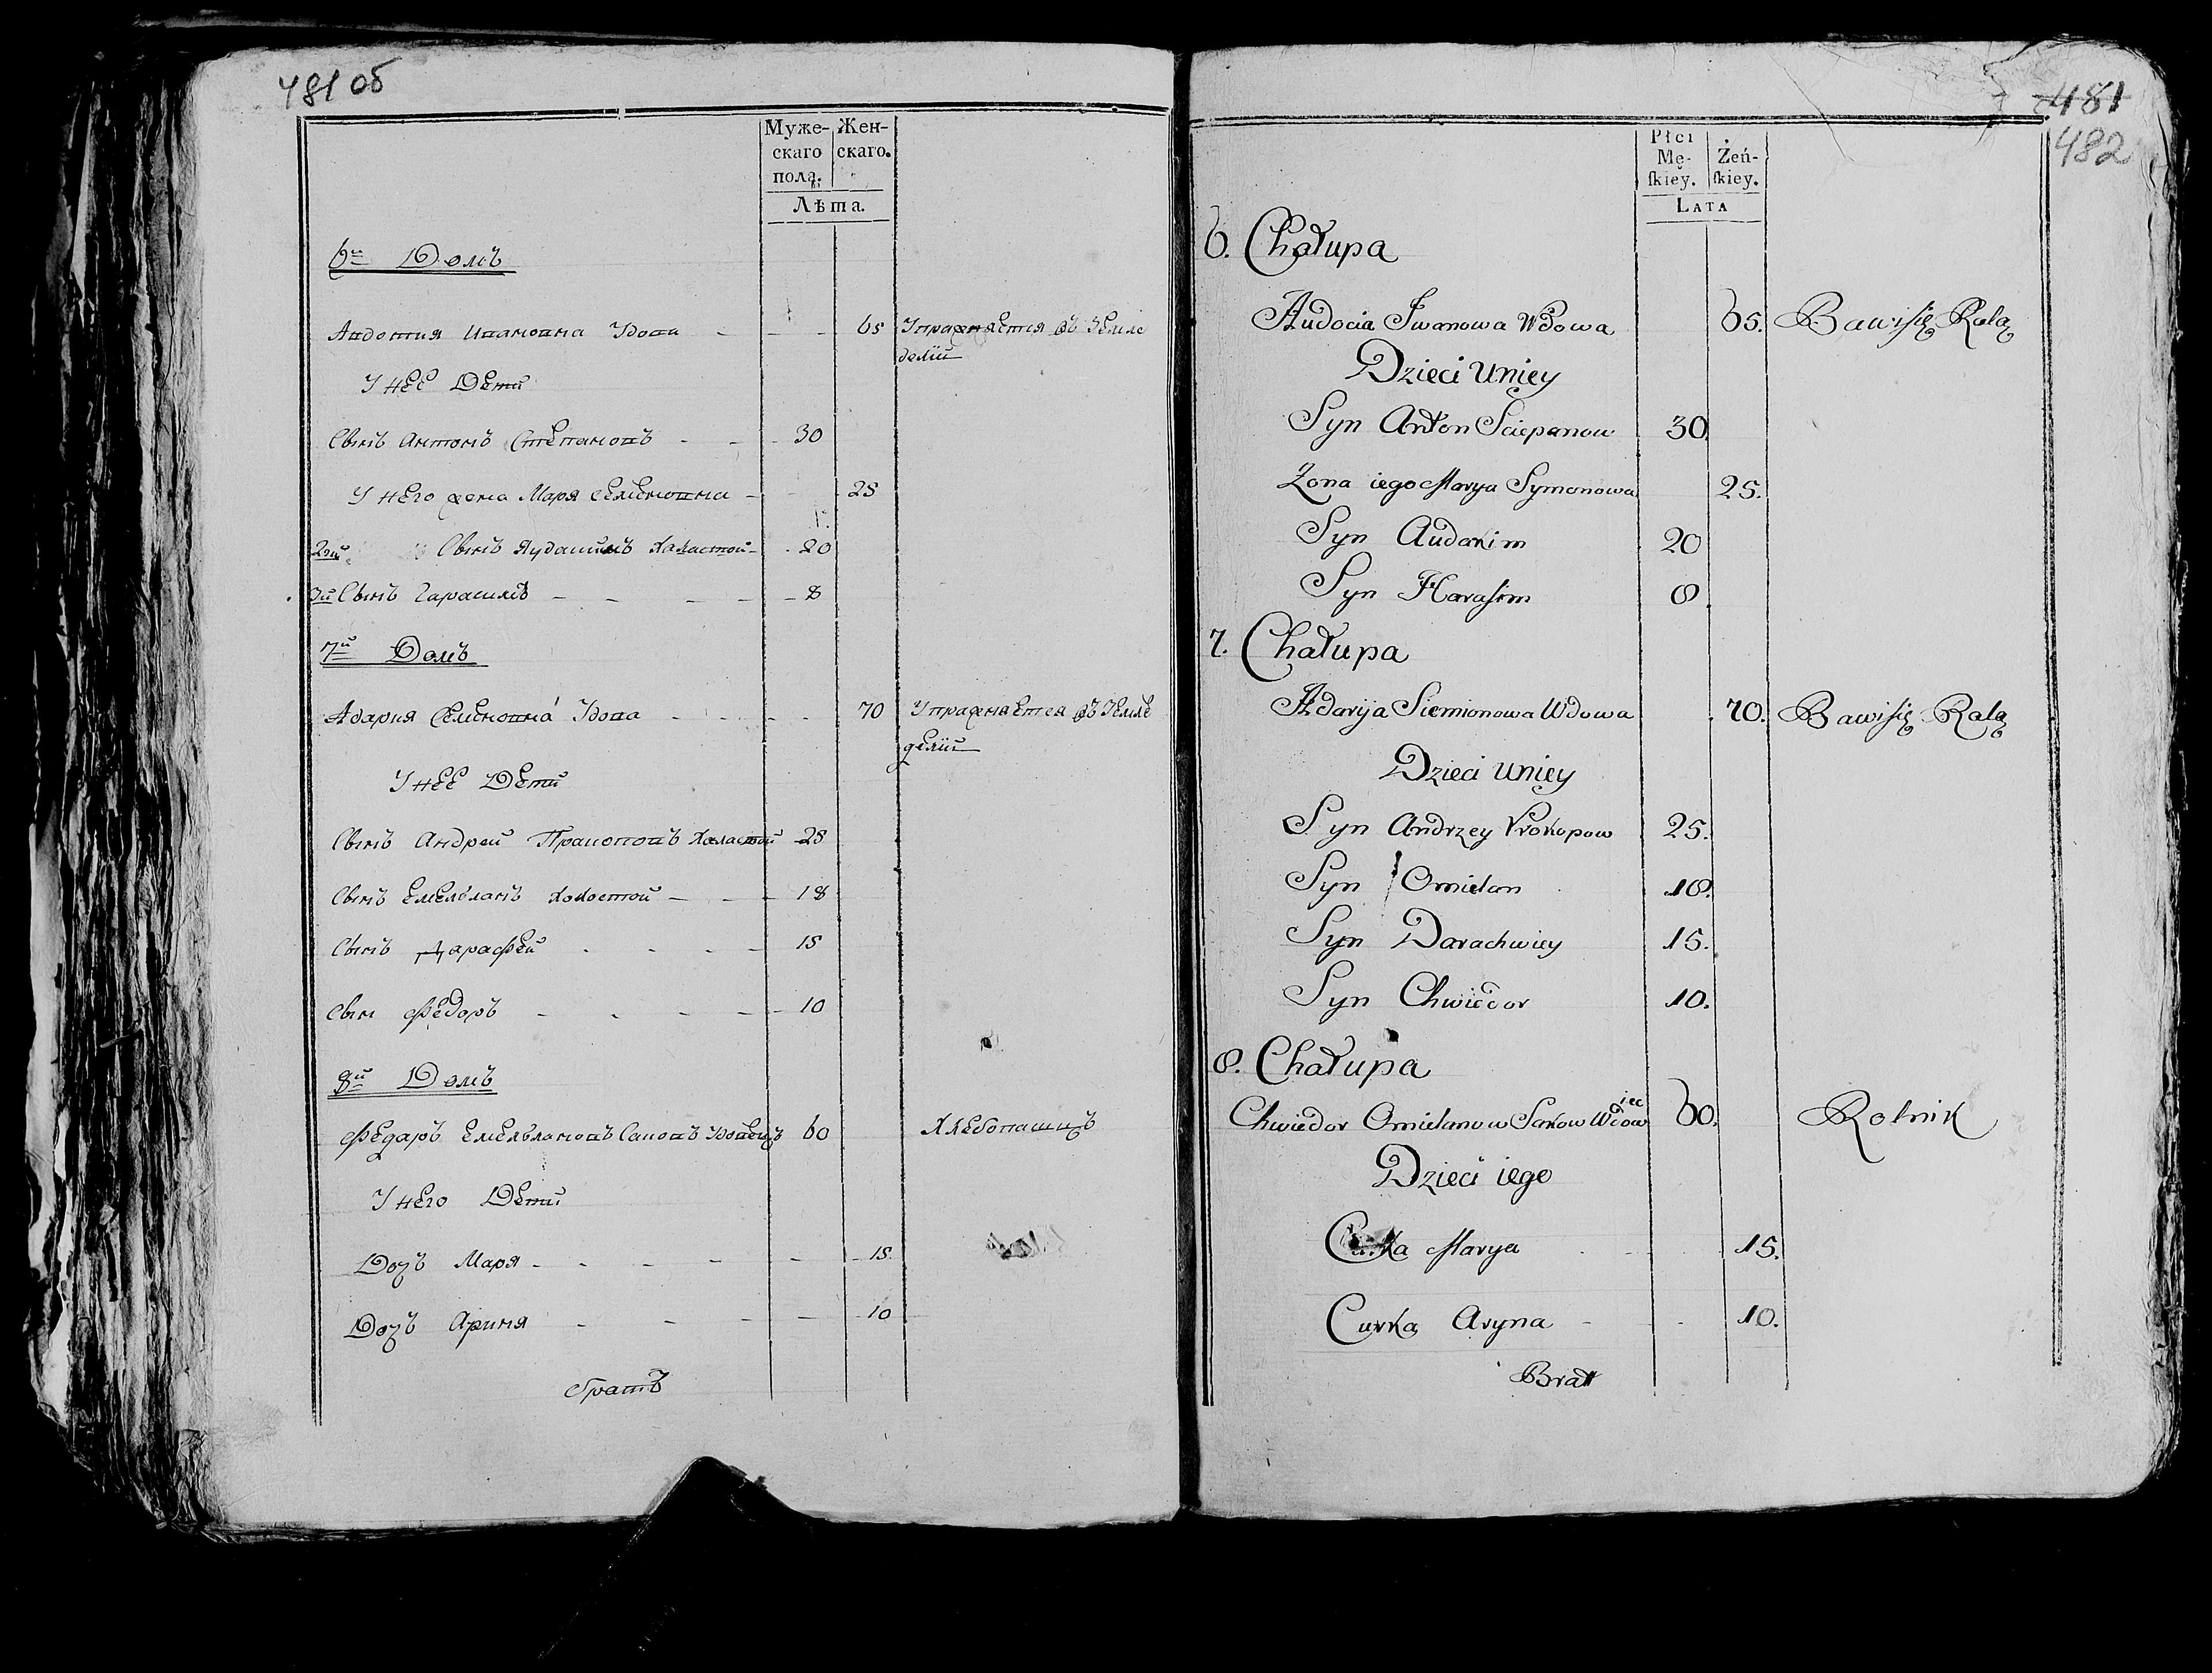 481 об
Муже- Жен-
скаго скаго.
пола.
Лѣта.
6й Домъ
Авдотия Ивановна Удова - - - 65 Упражняется въ Земле
делiи
У нее Дети
Сынъ Антонъ Степановъ - - - 30
У него жена Маря Семеновна - - 25
2й Сынъ Яудакимъ Халастой - 20
3й Сынъ Гарасимъ - - - - - 8
7й Домъ
Адария Семеновна Удова - - - - 70 Упражняется въ Земле
делiи
У нее Дети
Сынъ Андрей Пракоповъ Халастой 25
Сынъ Емельянъ Холостой - - - 18
Сынъ Дарафей - - - - 15
Сын Федоръ - - - - - 10
8й Домъ
Федаръ Емельяновъ Саковъ Удовецъ 60 Хлебопашцъ
У него Дети
Дочъ Маря - - - - - - 15.
Дочъ Ариня - - - - - 10
братъ
481
482
Płci
Mę- Żeń-
ſkiey. ſkiey.
LATA
6. Chałupa
Audocia Iwanowa Wdowa 65. Bawi się Rolą
Dzieci u niey
Syn Anton Sciepanow 30.
Zona iego Marya Symonowa 25.
Syn Audakim 20
Syn Harasim 8.
7. Chałupa
Adarija Siemionowa Wdowa 70. Bawi się Rolą
Dzieci u niey
Syn Andrzey Prokopow 25.
Syn Omielan 18.
Syn Darachwiey 15.
Syn Chwiedor 10.
8. Chałupa
Chwiedor Omielanow Sakow Wdowiec 60. Rolnik
Dzieci iego
Curka Marya 15.
Curka Aryna - - 10.
Bratt